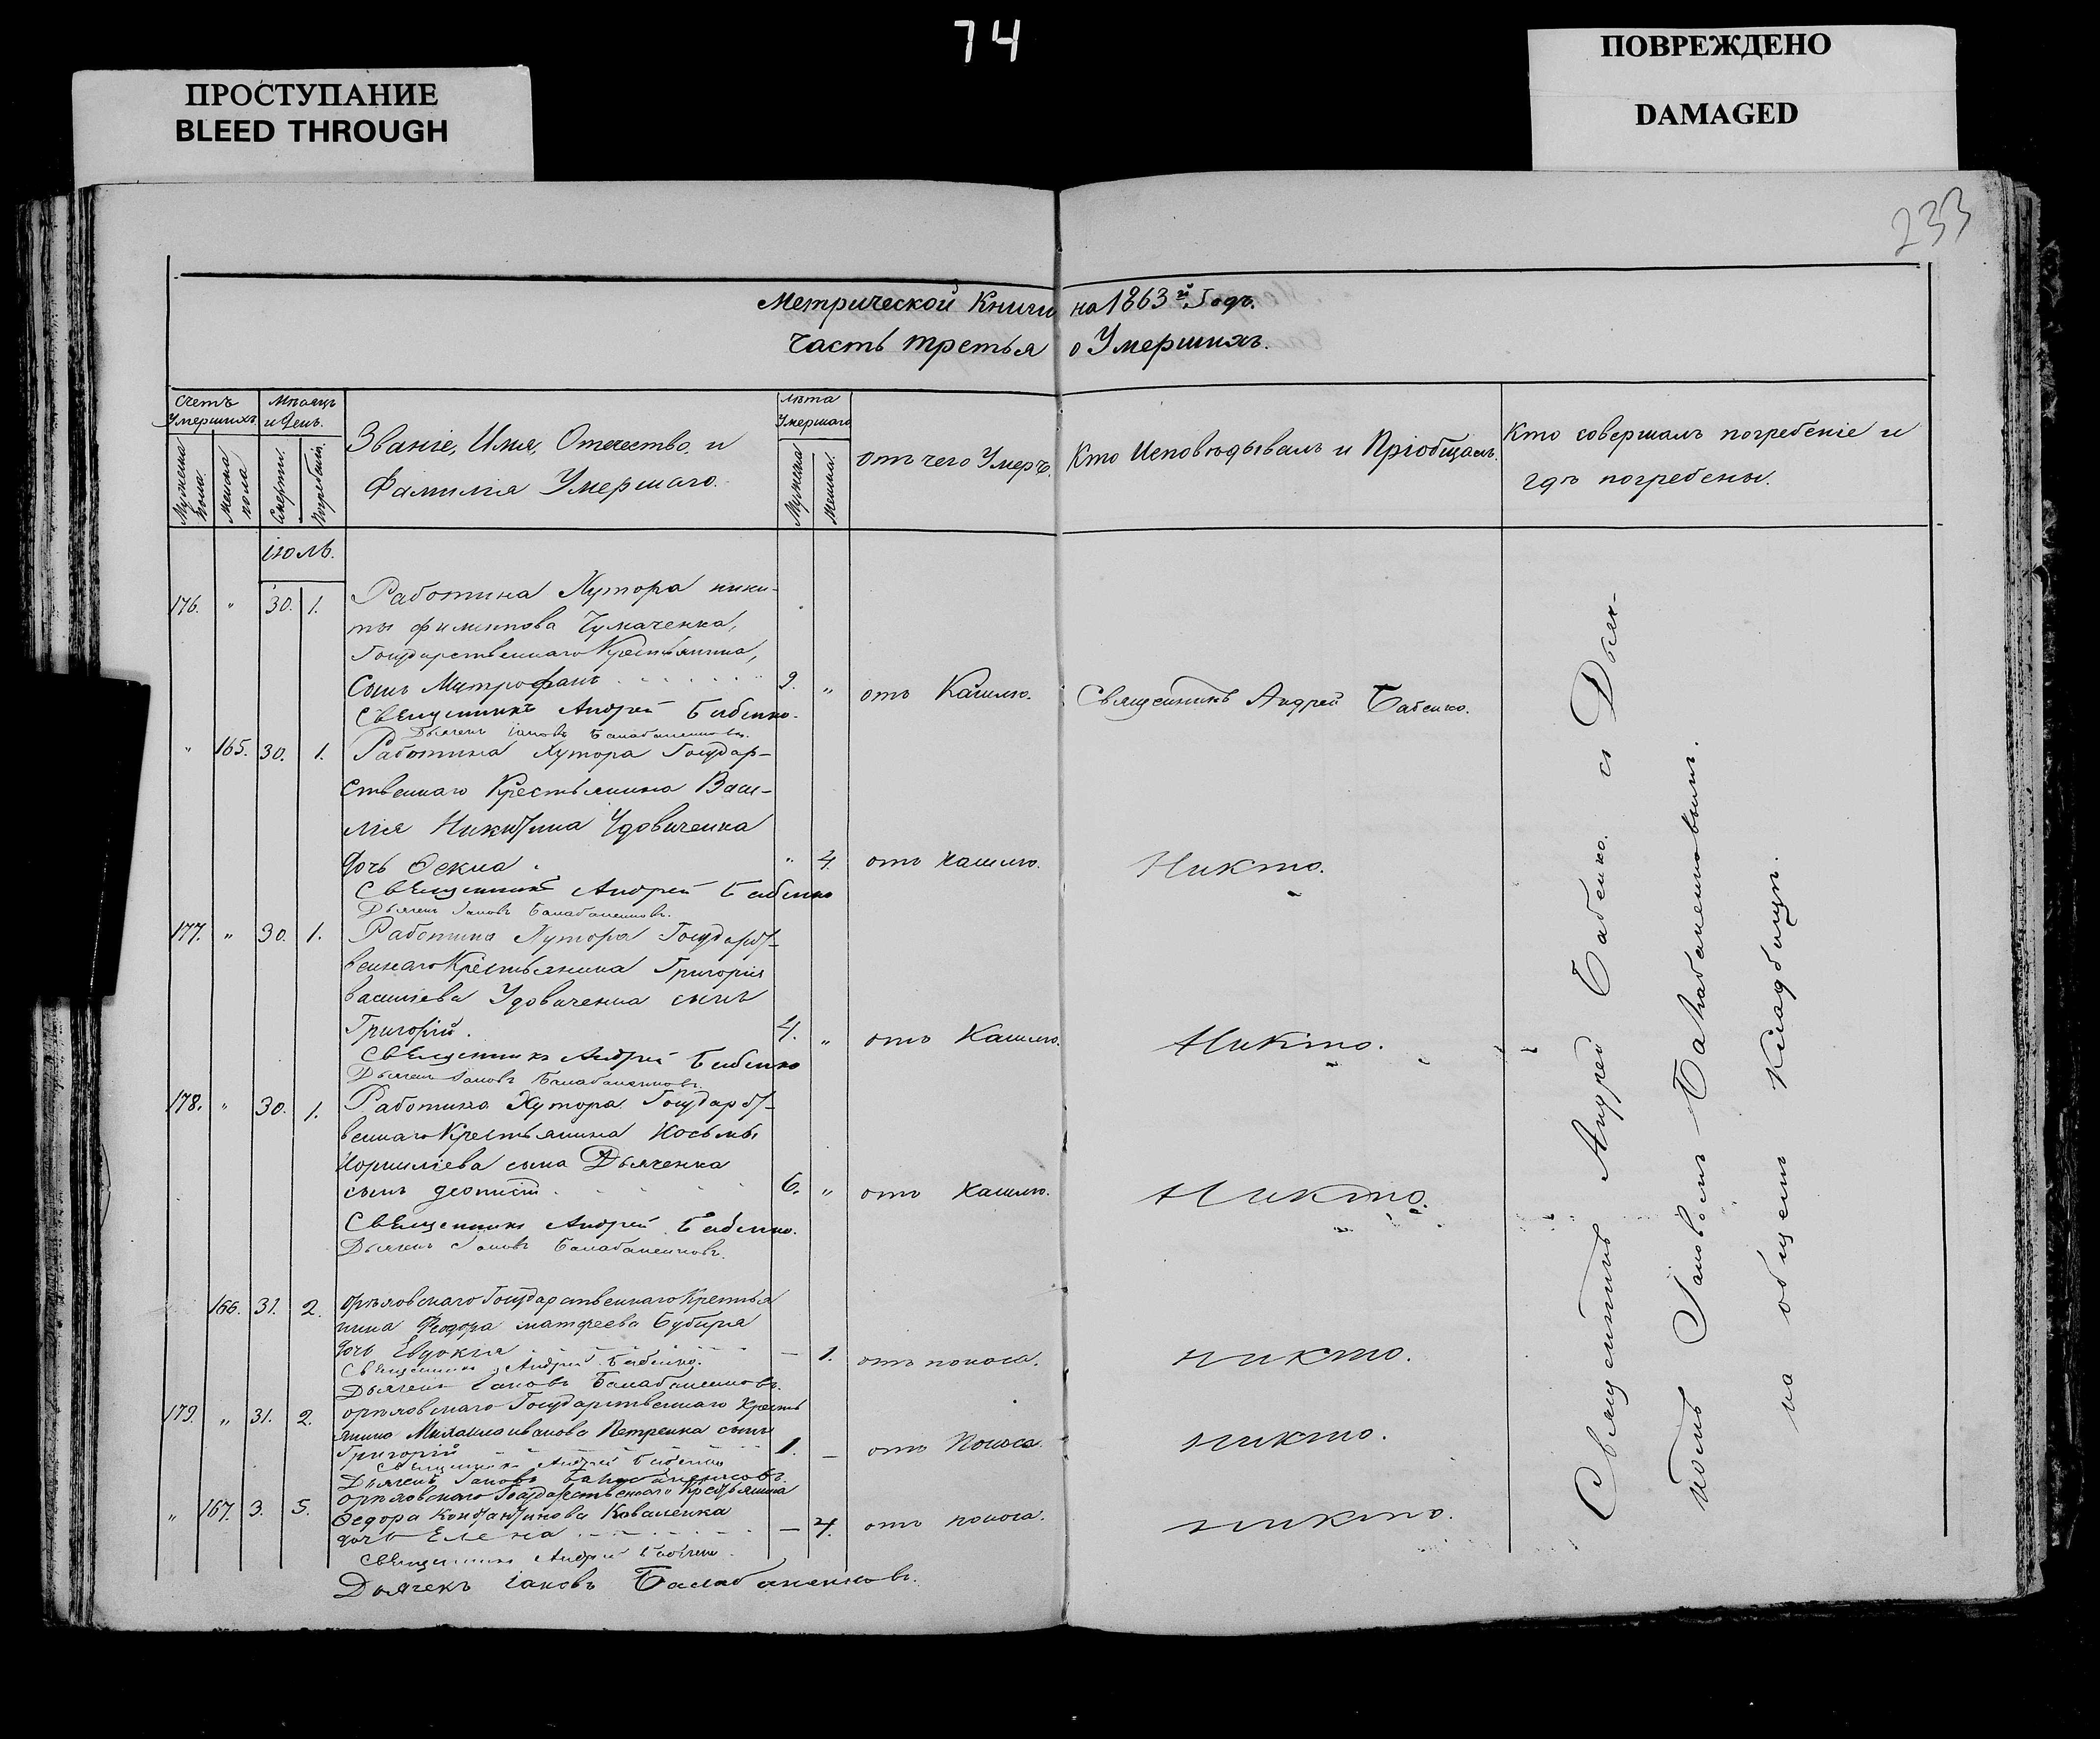 74
ПРОСТУПАНИЕ
BLEED THROUGH
ПОВРЕЖДЕНО
DAMAGED
233
Метрической Книги на 1863й Годъ.
Часть третья о Умершихъ.
Счетъ Умершихъ
Мужеска пола.
Женска пола
Мѣсяцъ и День.
Смерти.
Погребенія.
Званіе, Имя, Отечество, и
Фамилія Умершаго.
Лѣта Умершаго
Мужска
Женск.
Отъ чего Умеръ.
Кто Исповѣдывалъ и Пріобщалъ.
Кто совершалъ погребеніе и
гдѣ погребены.
іюль.
176. " 30. 1. Работина Хутора ники-
ты филиппова Чумаченка,
Государственнаго Крестьянина,
Сынъ Митрофанъ 9. " отъ Кашлю. Священникъ Андрей Бабенко.
Священникъ Андрей Бабенко.
Дьячекъ Іаковъ Балабаненковъ.
" 165. 30. 1. Работина Хутора Государ-
ственнаго Крестьянина Васи-
лія Никитина Удовиченка
дочь Ѳекла " 4. отъ кашлю. Никто.
Священникъ Андрей Бабенко
Дьячекъ Іаковъ Балабаненковъ.
177. " 30. 1. Работина Хутора Государст-
веннаго Крестьянина Григорія
Васильева Удовиченка сынъ
Григорій. 4. " отъ Кашлю. Никто.
Священникъ Андрей Бабенко
Дьячекъ Іаковъ Балабаненковъ.
178. " 30. 1. Работина Хутора Государст-
веннаго Крестьянина Косьмы
Корнилiева сына Дьяченка
сынъ 6. " отъ кашлю. Никто.
Священникъ Андрей Бабенко.
Дьячекъ Іаковъ Балабаненковъ.
166. 31. 2. орѣловскаго Государственнаго Крестья
нина Ѳеодора матфеева Бубыря
дочь Евдокія — 1. отъ поноса. никто.
Священникъ Андрей Бабенко.
Дьячекъ Іаковъ Балабаненковъ.
179. " 31. 2. орѣловскаго Государственнаго Кресть
янина Михаила иванова Петренка сынъ
Григорій 1. — отъ Поноса. никто.
Священникъ Андрей Бабенко
Дьячекъ Іаковъ Балабаненковъ.
" 167. 3. 5. орѣловскаго Государственнаго Крестьянина
Ѳедора Константинова Коваленка
дочь Елена — 4. отъ поноса. никто.
Священникъ Андрей Бабенко.
Дьячекъ Іаковъ Балабаненковъ.
Священникъ Андрей Бабенко. съ Дьяч-
комъ Іаковомъ Балабаненковымъ.
на общемъ Кладбищѣ.